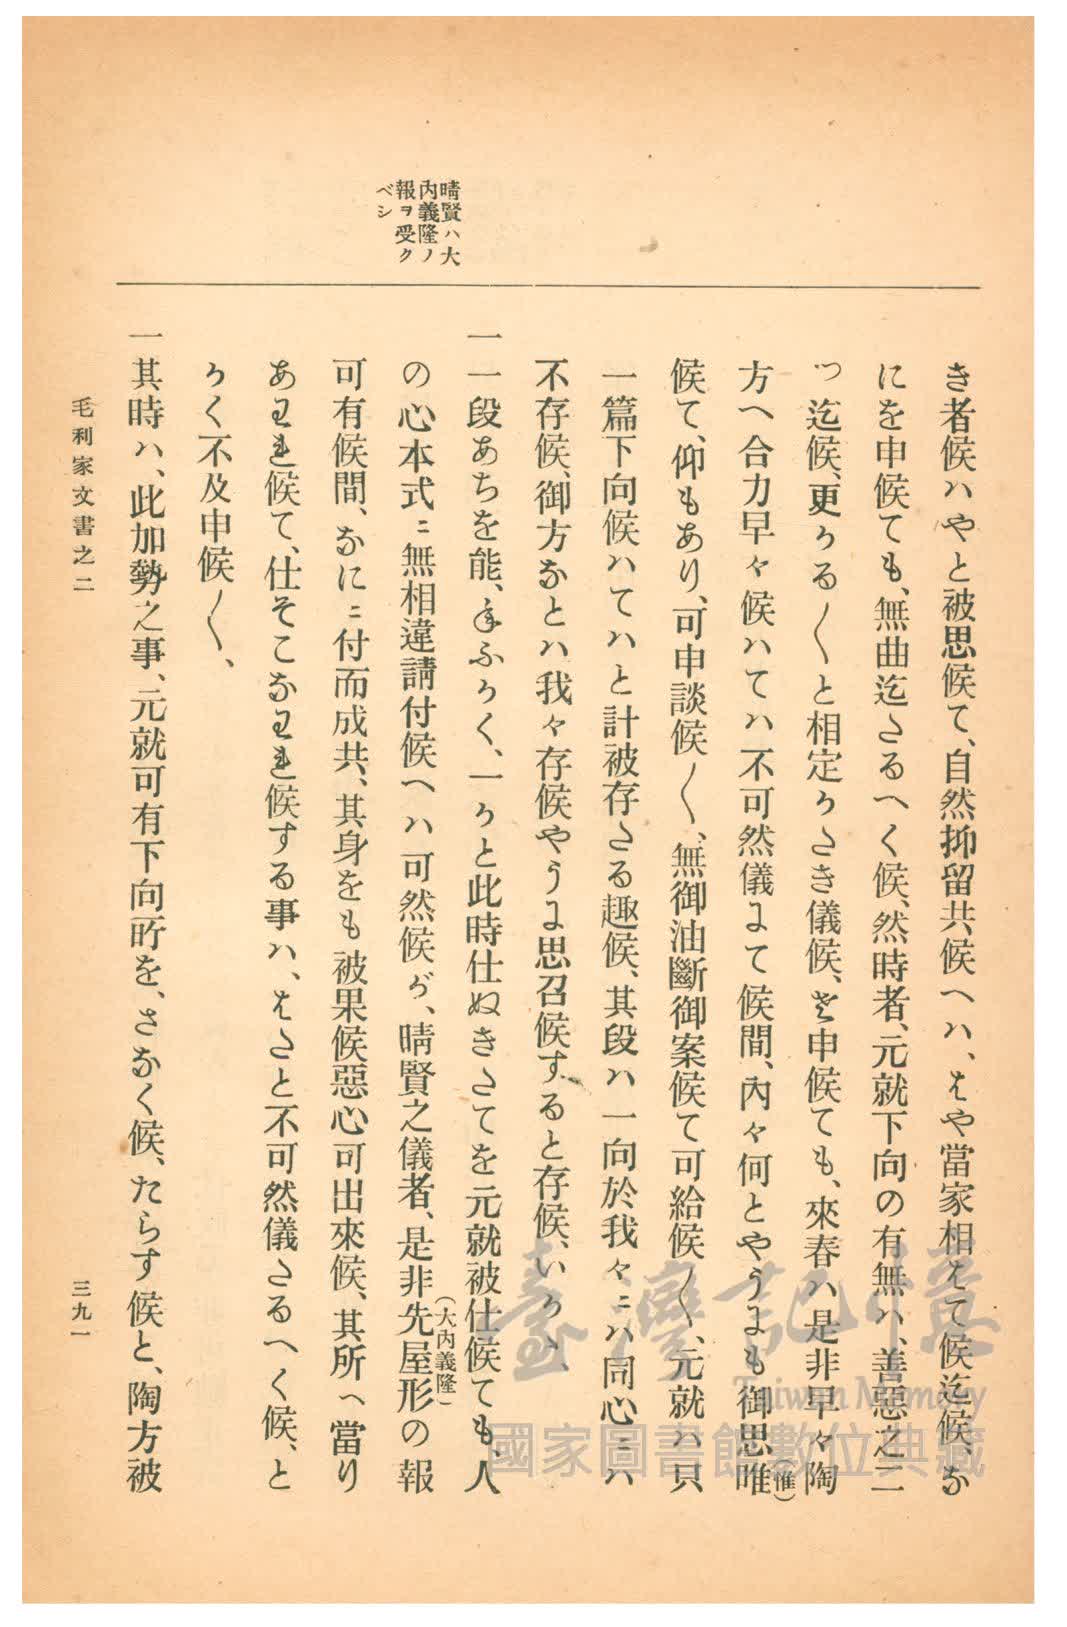 晴賢ハ大
內義隆ノ
報ヲ受ク
ベシ
き者候ハやと被思候て、自然抑留共候ヘハ、はや當家相はて候迄候、な
にを申候ても、無曲迄たるへく候、然時者、元就下向の有無ハ、善惡之二
つ迄候、更かる〱と相定かたき儀候、を申候ても、來春ハ是非早々陶
方ヘ合力早々候ハてハ不可然儀にて候間、內々何とやうにも御思唯(惟)
候て、仰もあり、可申談候〱、無御油斷御案候て可給候〱、元就ハ只
一篇下向候ハてハと計被存たる趣候、其段ハ一向於我々ニハ同心ニハ
不存候、御方なとハ我々存候やうに思召候すると存候、いかゝ、
一一段あちを能、手ふかく、一かと此時仕ぬきたてを元就被仕候ても、人
の心本式ニ無相違請付候ヘハ可然候が、晴賢之儀者、是非先屋形(大內義隆)の報
可有候間、なにニ付而成共、其身をも被果候惡心可出來候、其所ヘ當り
あわれ候て、仕そこなわれ候する事ハ、はたと不可然儀たるへく候、と
かく不及申候〱、
一其時ハ、此加勢之事、元就可有下向所を、さなく候、たらす候と、陶方被
毛利家文書之二
三九一
臺灣記憶
Taiwan Memory
國家圖書館數位典藏